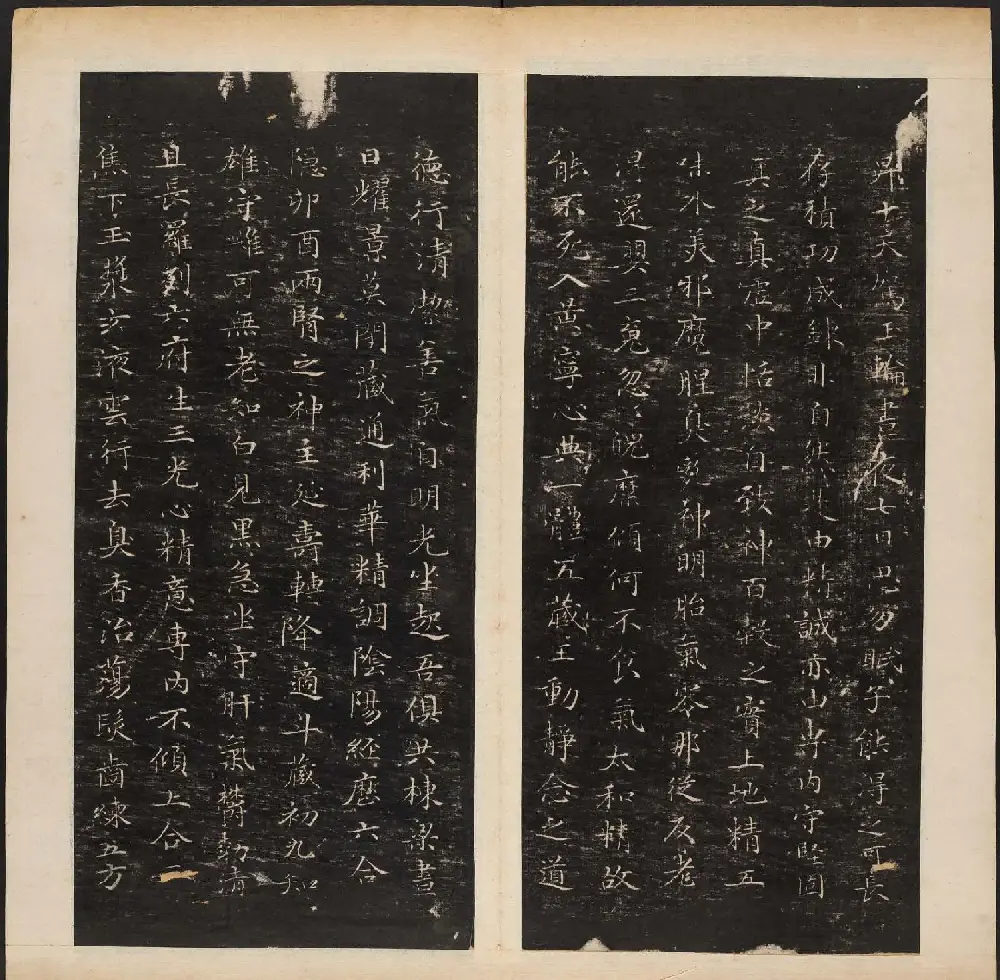 昇十天駕玉輪晝夜七日思勿眠子能得之可長
存積功成鍊非自然是由精誠亦由專內守堅固
真之真虛中恬淡自致神百穀之實土地精五
味外美邪魔腥臭亂神明胎氣零那從反老
得還嬰三魂忽忽魄糜傾何不食氣太和精故
能不死入黃寧心典一體五藏王動靜念之道
德行清潔善氣自明光坐起吾俱共棟梁晝
日耀景莫閉藏通利華精調陰陽經歷六合
隱卯酉兩腎之神主延壽轉降適斗藏初九知
雄守雌可無老知白見黑急坐守肝氣鬱勃清
且長羅列六府生三光心精意專內不傾上合三
焦下玉漿玄液雲行去臭香治蕩髮齒練五方